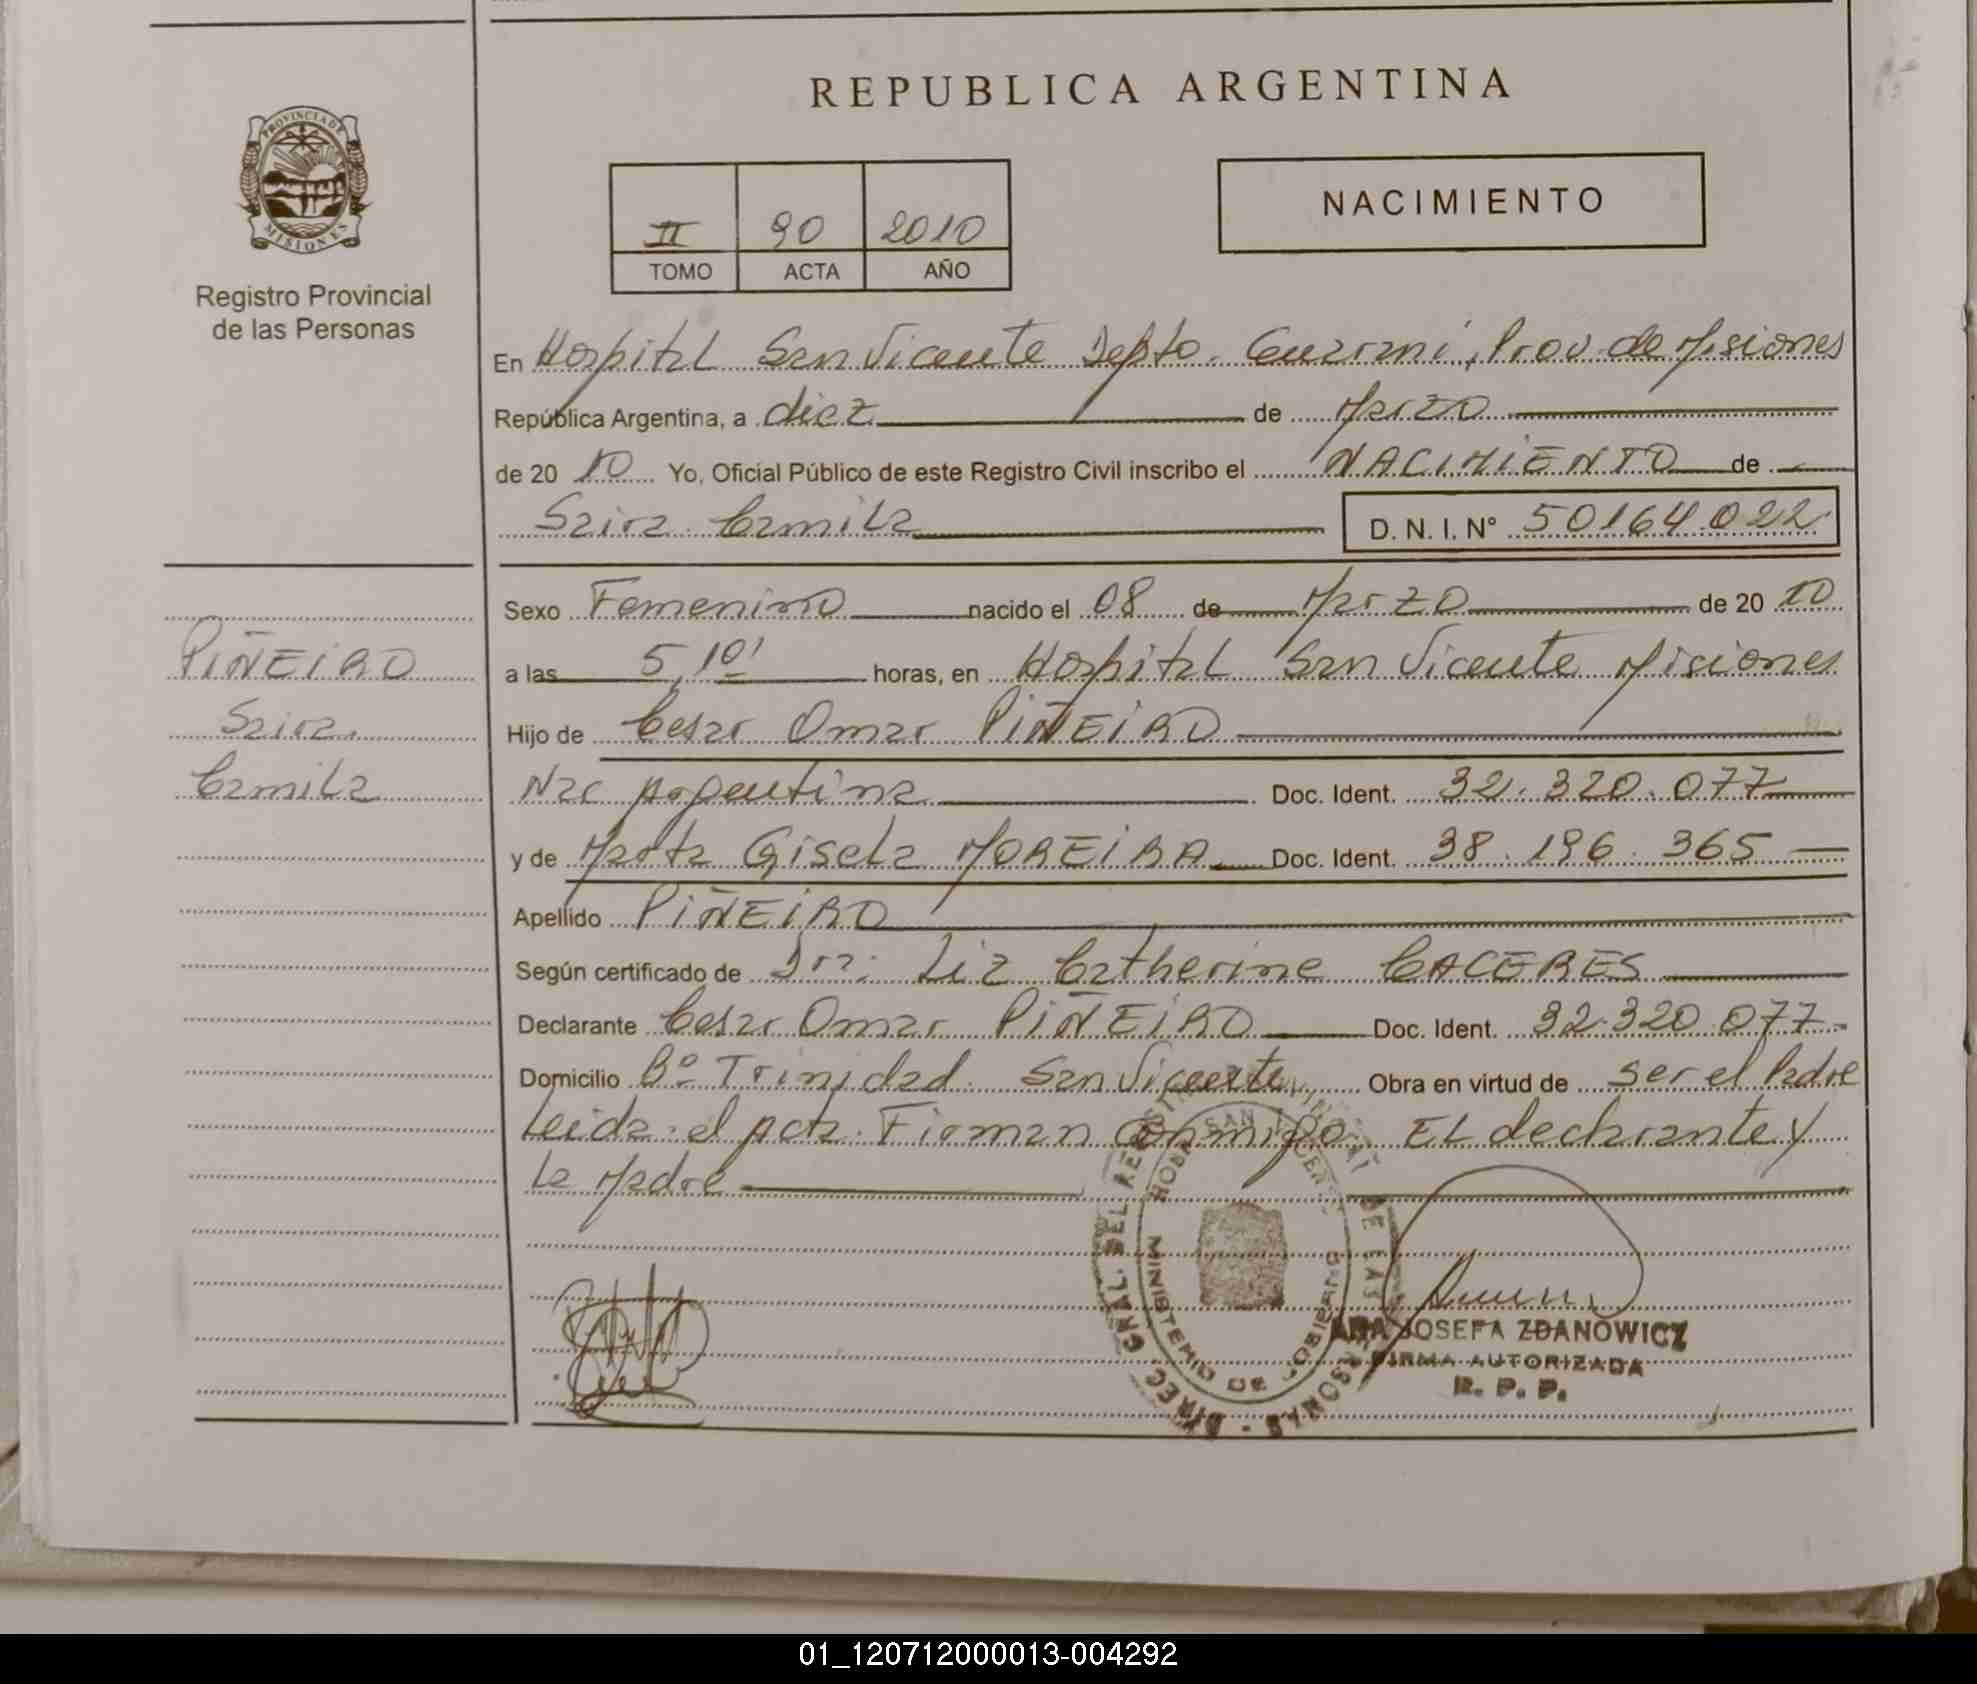 REPUBLICA ARGENTINA
PROVINCIA DE
MISIONES
Registro Provincial
de las Personas
II 90 2010
TOMO ACTA AÑO
NACIMIENTO
En Hospital San Vicente Depto. Guarani, Prov. de Misiones
República Argentina, a diez de Marzo
de 20 10 Yo, Oficial Público de este Registro Civil inscribo el NACIMIENTO de
Saira Camila D. N. I. N° 50164.022
Sexo Femenino nacido el 08 de Marzo de 20 10
a las 5,10' horas, en Hospital San Vicente Misiones
Hijo de Cesar Omar PIÑEIRO
Nac Argentina Doc. Ident. 32.320.077
y de Marta Gisela MOREIRA Doc. Ident. 38.196.365
Apellido PIÑEIRO
Según certificado de Dra. Liz Catherine CACERES
Declarante Cesar Omar PIÑEIRO Doc. Ident. 32.320.077
Domicilio Bº Trinidad San Vicente Obra en virtud de ser el Padre
Leida el Acta Firman Conmigo EL declarante y
La Madre
PIÑEIRO
Saira
Camila
DIREC. GRAL. DEL REGISTRO DE LAS PERSONAS
SAN VICENTE
MINISTERIO DE GOBIERNO
ANA JOSEFA ZDANOWICZ
FIRMA AUTORIZADA
R. P. P.
01_120712000013-004292